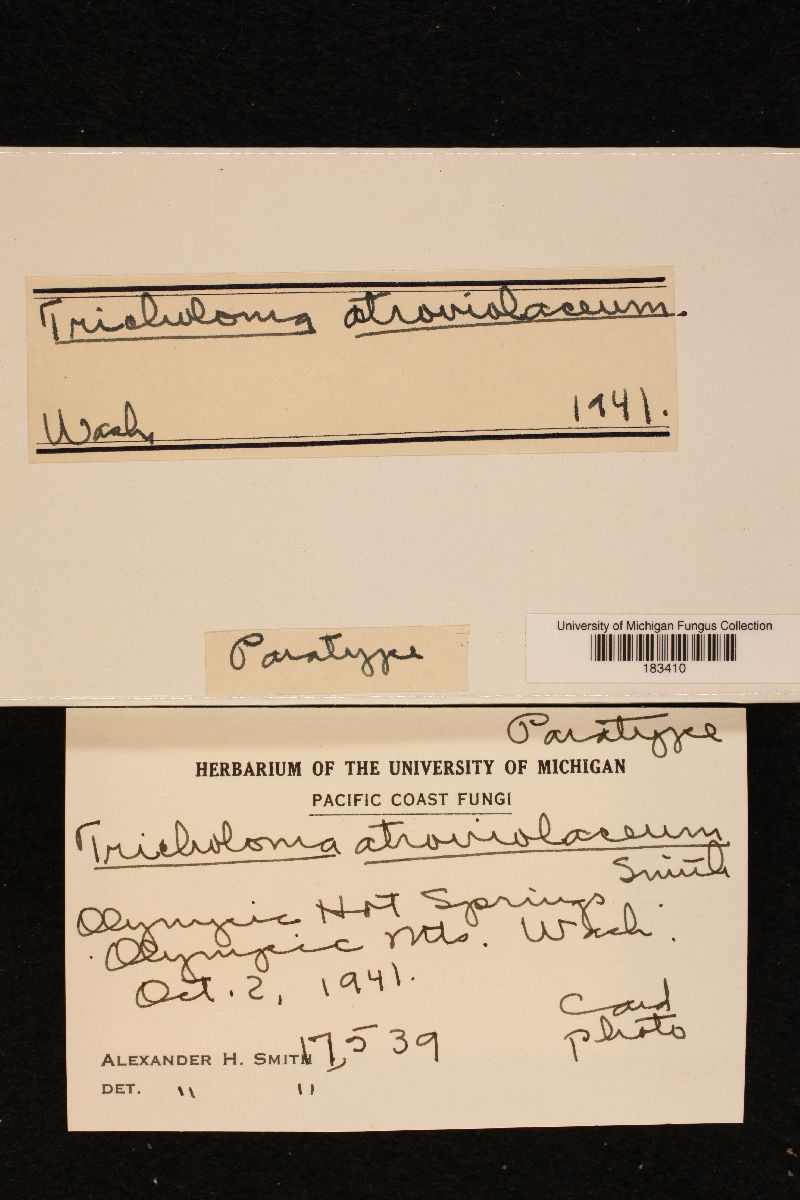 Tricholoma atroviolaceum.
Wash. 1941.
Paratype
University of Michigan Fungus Collection
183410
Paratype
HERBARIUM OF THE UNIVERSITY OF MICHIGAN
PACIFIC COAST FUNGI
Tricholoma atroviolaceum
Smith
Olympic Hot Springs
Olympic Mts. Wash.
Oct. 2, 1941.
Card
photo
ALEXANDER H. SMITH 17,539
DET. " "